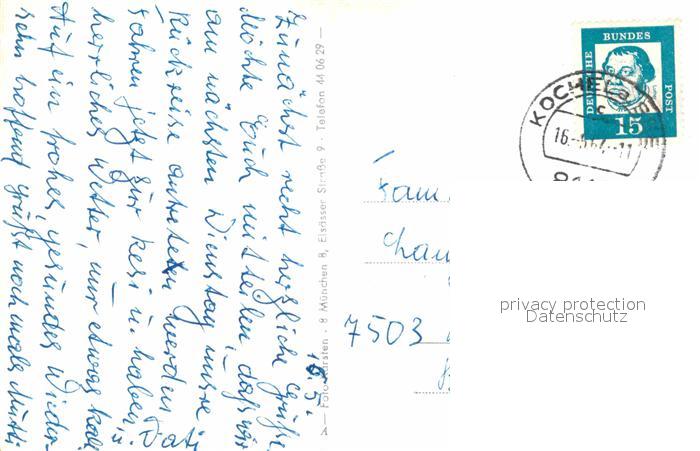 Zunächst recht herzliche Grüße.
Möchte Euch mitteilen, daß wir
am nächsten Dienstag unsere
Rückreise antreten werden
fahren jetzt zur Resi u. haben
herrliches Wetter, nur etwas kalt
Auf ein frohes, gesundes Wieder-
sehn hoffend grüßt nochmals Mutti
u. Vati
16. 5.
A — Foto Karsten · 8 München 8, Elsässer Straße 9 · Telefon 44 06 29 —
DEUTSCHE BUNDES POST
15
KOCHEL a
16.-5.64.-11
Fam
7503
privacy protection
Datenschutz